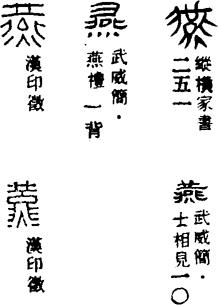 燕
縱橫家書
二五一
燕
武威簡·
燕禮 一背
燕
漢印徵
燕
武威簡·
士相見一〇
燕
漢印徵